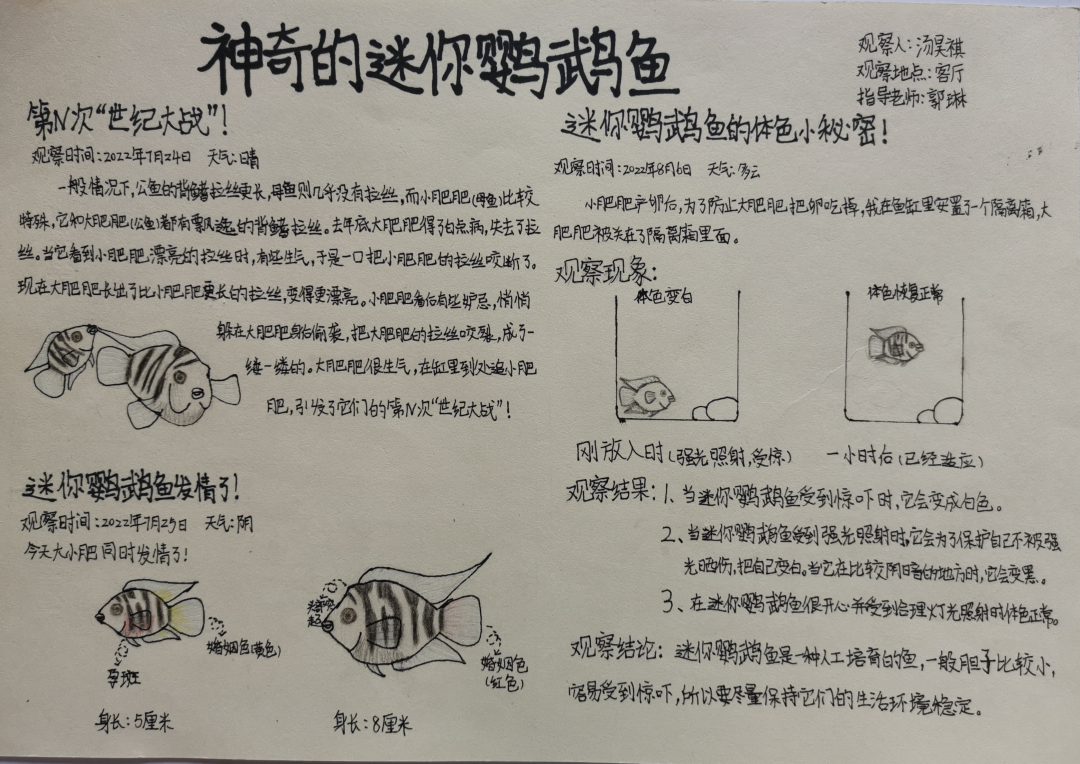 神奇的迷你鹦鹉鱼
观察人:汤昊祺
观察地点:客厅
指导老师:郭琳
第N次“世纪大战”!
观察时间:2022年7月24日 天气:晴
一般情况下,公鱼的背鳍拉丝更长,母鱼则几乎没有拉丝,而小肥肥(母鱼)比较
特殊,它和大肥肥(公鱼)都有飘逸的背鳍拉丝。去年底大肥肥得了白点病,失去了拉
丝。当它看到小肥肥漂亮的拉丝时,有些生气,于是一口把小肥肥的拉丝咬断了。
现在大肥肥长出了比小肥肥更长的拉丝,变得更漂亮。小肥肥看后有些妒忌,悄悄
躲在大肥肥身后偷袭,把大肥肥的拉丝咬裂,成了一
缕一缕的。大肥肥很生气,在缸里到处追小肥
肥,引发了它们的第N次“世纪大战”!
迷你鹦鹉鱼发情了!
观察时间:2022年7月25日 天气:阴
今天大小肥同时发情了!
孕斑
婚姻色(黄色)
身长:5厘米
婚姻色
(红色)
身长:8厘米
迷你鹦鹉鱼的体色小秘密!
观察时间:2022年8月6日 天气:多云
小肥肥产卵后,为了防止大肥肥把卵吃掉,我在鱼缸里安置了一个隔离箱,大
肥肥被关在了隔离箱里面。
观察现象:
体色变白
体色恢复正常
刚放入时(强光照射,受惊)
一小时后(已经适应)
观察结果:1、当迷你鹦鹉鱼受到惊吓时,它会变成白色。
2、当迷你鹦鹉鱼受到强光照射时,它会为了保护自己不被强
光晒伤,把自己变白。当它在比较阴暗的地方时,它会变黑。
3、在迷你鹦鹉鱼很开心并受到合理灯光照射时体色正常。
观察结论:迷你鹦鹉鱼是一种人工培育的鱼,一般胆子比较小,
容易受到惊吓,所以要尽量保持它们的生活环境稳定。